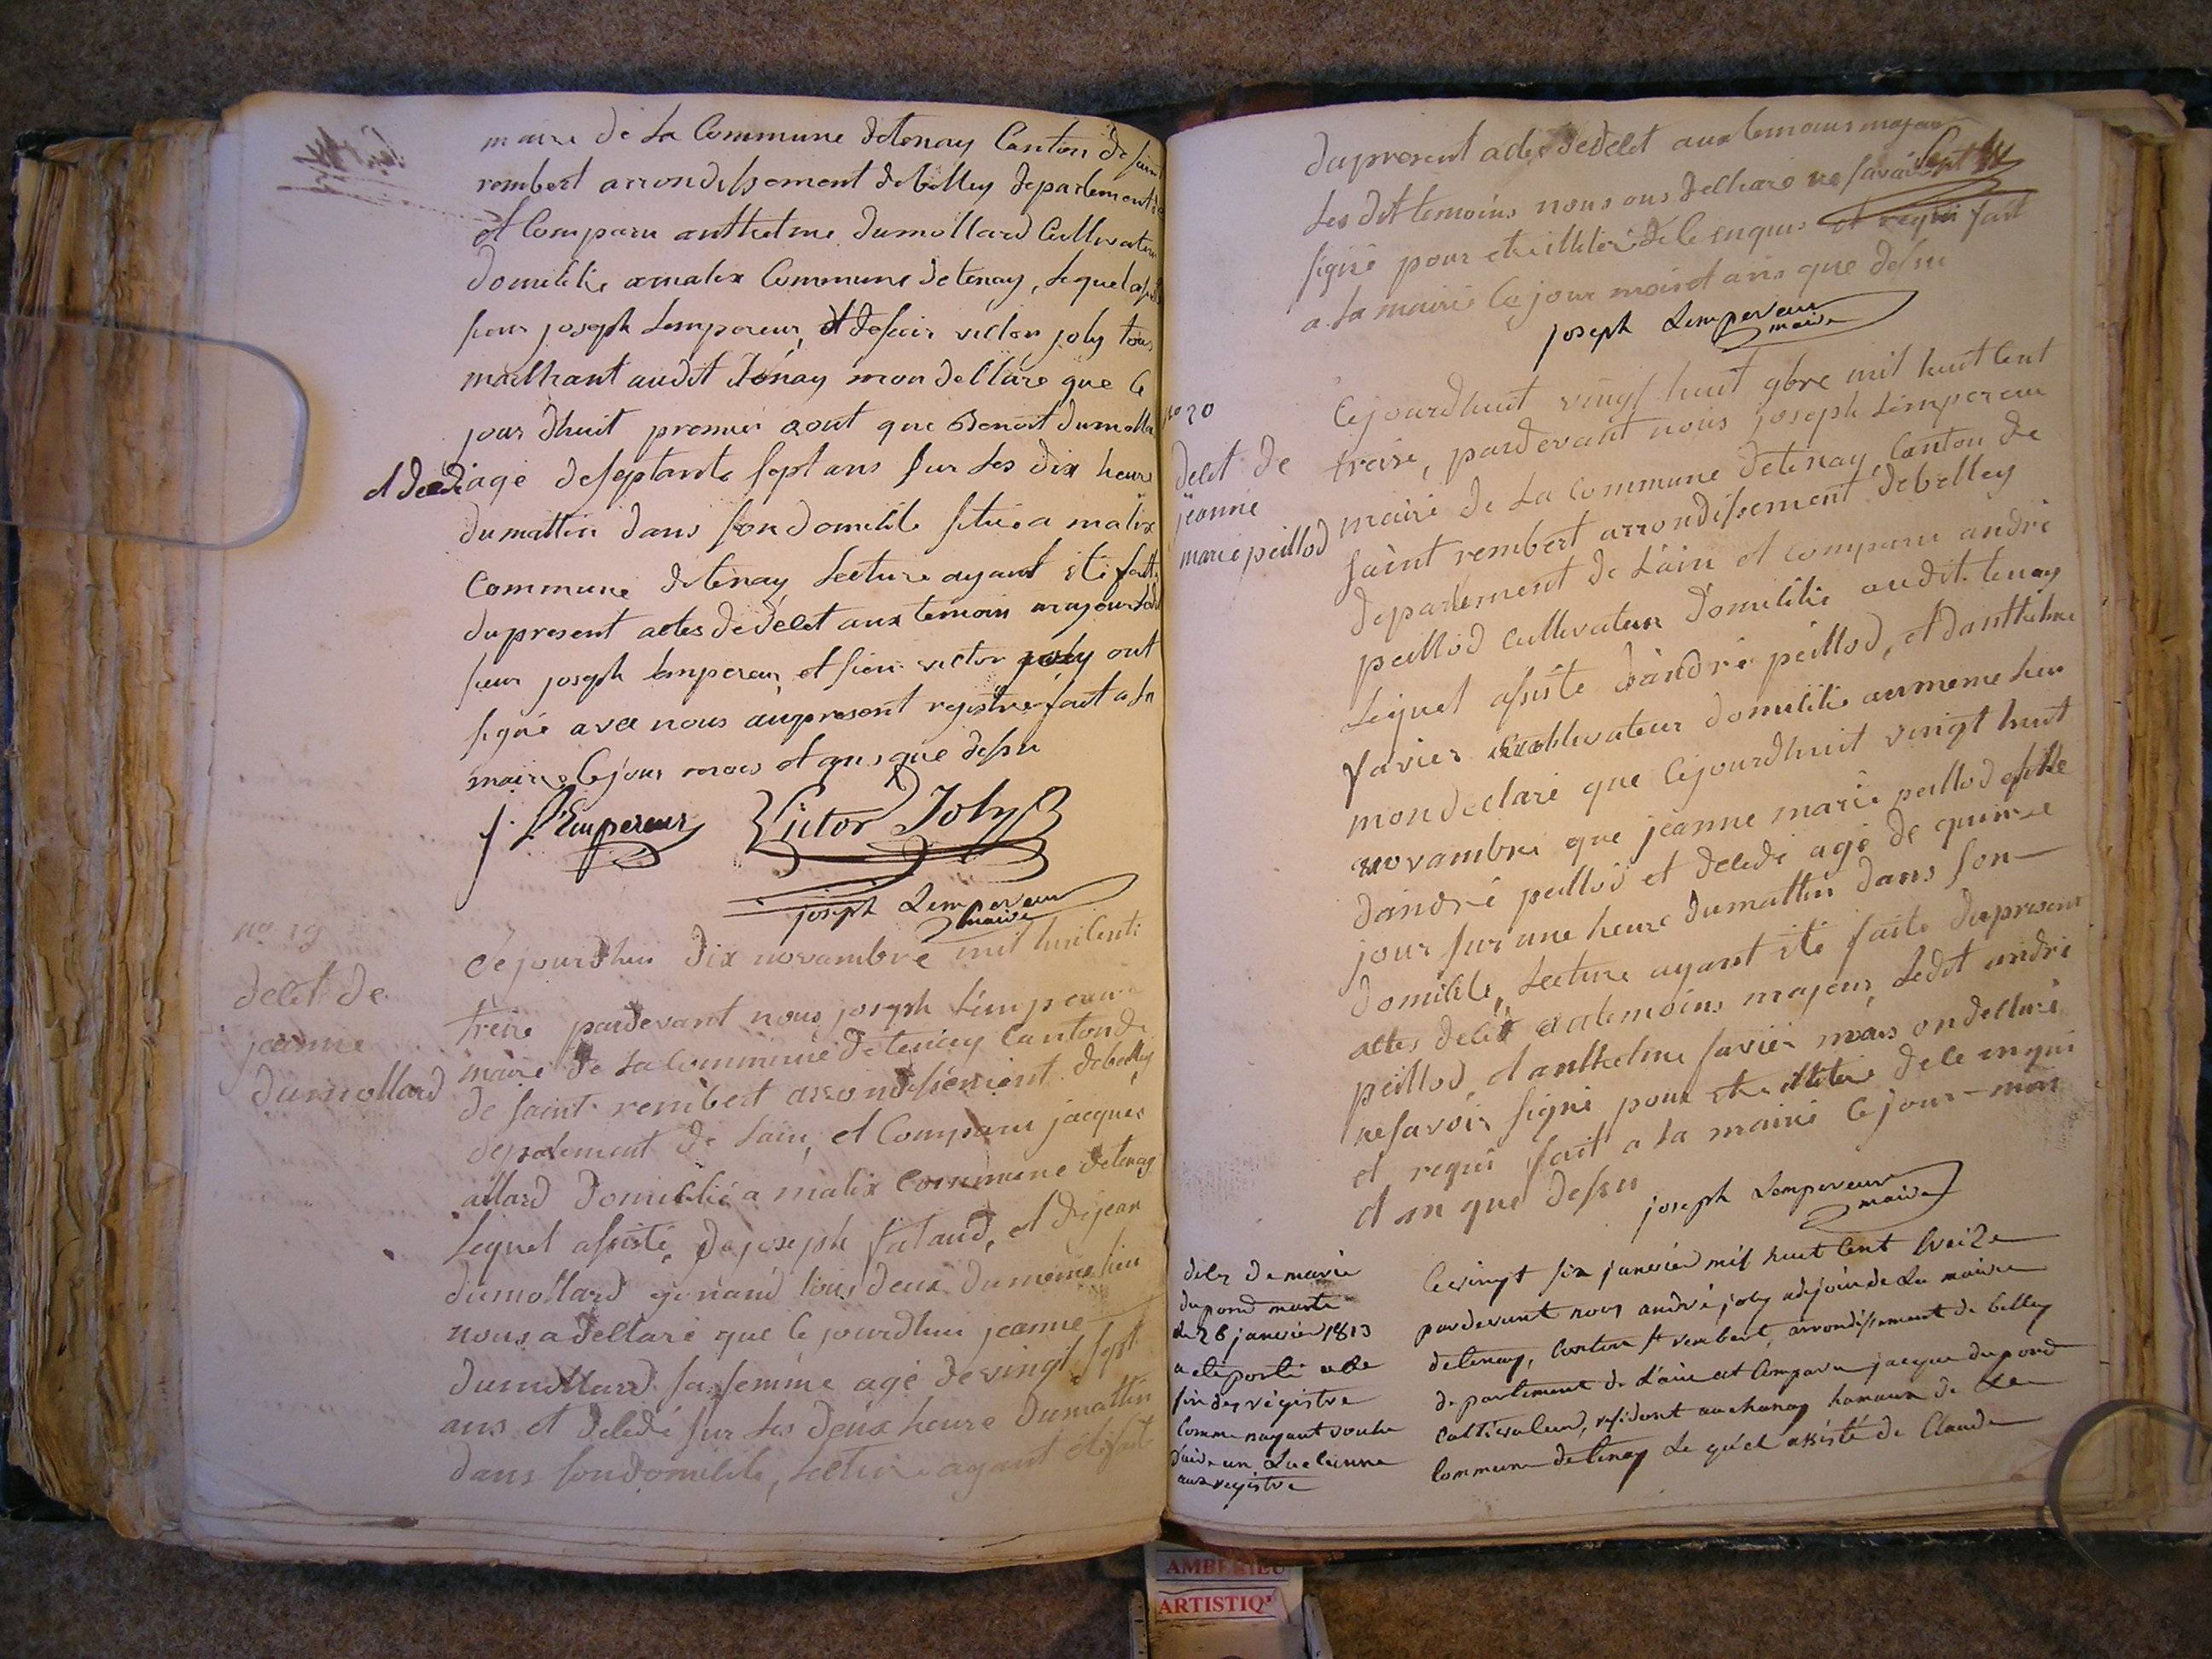 maire de La Commune detenay Canton de saint
rembert arrondissement debelley departement
et Comparu anthelme dumollard Cultivateur
domicilie amalix Commune detenay, Lequel
sieur joseph Lempereur, et desieur victor joly tous
audit tenay mon dellare que Ce
jour dhuit premier aout que Benoit dumolla
et decede age deseptante sept ans sur Les dix heure
dumattin dans son domicile situé a malix
Commune detenay Lecture ayant été fatte
dupresent actes dedelet aux temoin majeur
sieur joseph Lempereur, et sieur victor joly ont
signé avec nous aupresent registre fait a La
mairie Ce jour mois et ans que dessu
j. L'Empereur Victor Joly
joseph Lempereur
maire
no 19
delet de
jeanne
dumollard
Cejourdhui dix novambre mil huit Cent
treize pardevant nous joseph Lempereur
maire de La Commune detenay Canton de
de saint rembert arrondissement debelley
depatement de Lain, et Comparu jacques
allard domicilié a malix Commune detenay
Lequel assisté, de joseph falaud, et de jean
dumollard tous deux dumeme lieu
nous a dellaré que Ce jourdhui jeanne
dumollard sa femme agé de vingt sept
ans et deledé sur Les deux heure dumattin
dans sondomicile, Lecture ayant été fait
dupresent actes dedelet aux temoins majeur
Les dit temoins nous ons delhare ne savai
signé pour etre illiteré de Ce enquis et requi fait
a La mairie Ce jour mois et ans que dessu
joseph Lempereur
maire
no 20
delet de
jeanne
marie peillod
Cejourdhuit vingt huit 9bre mil huit Cent
treise, pardevant nous joseph Lempereur
maire de La Commune detenay, Canton de
saint rembert arrondissement debelley
departement de Lain et comparu andré
peillod cultivateur domicilié audit tenay
Lequel assisté dandré peillod, et danthelme
favier cultivateur domicilié aumeme lieu
mon declaré que Cejourdhuit vingt huit
novambre que jeanne marie peillod fille
dandré peillod et deledé agé de quinze
jour sur une heure dumattin dans son
domicile, Lecture ayant été faite dupresent
actes delet temoins majeur, Ledit andré
peillod, et anthelme favier nous on dellaré
nesavoir signé pour etre illiteré dele enquis
et requi fait a La mairie Ce jour mois
et an que dessu
joseph Lempereur
maire
delet de marie
dupond morte
le 26 janvier 1813
a eté porté a la
fin des régistre
Comme nayant voulu
aux registre
Ce vingt six janvier mil huit Cent treize
pardevant nous andré joly adjoin de La mairie
detenay, Canton st rembert, arrondissement de belley
departement de L'ain est Comparu jacque dupond
Cultivateur, résident au chanay hamaux de La
Commune detenay Le quel assisté de Claude
AMBERIEU
ARTISTIQ'